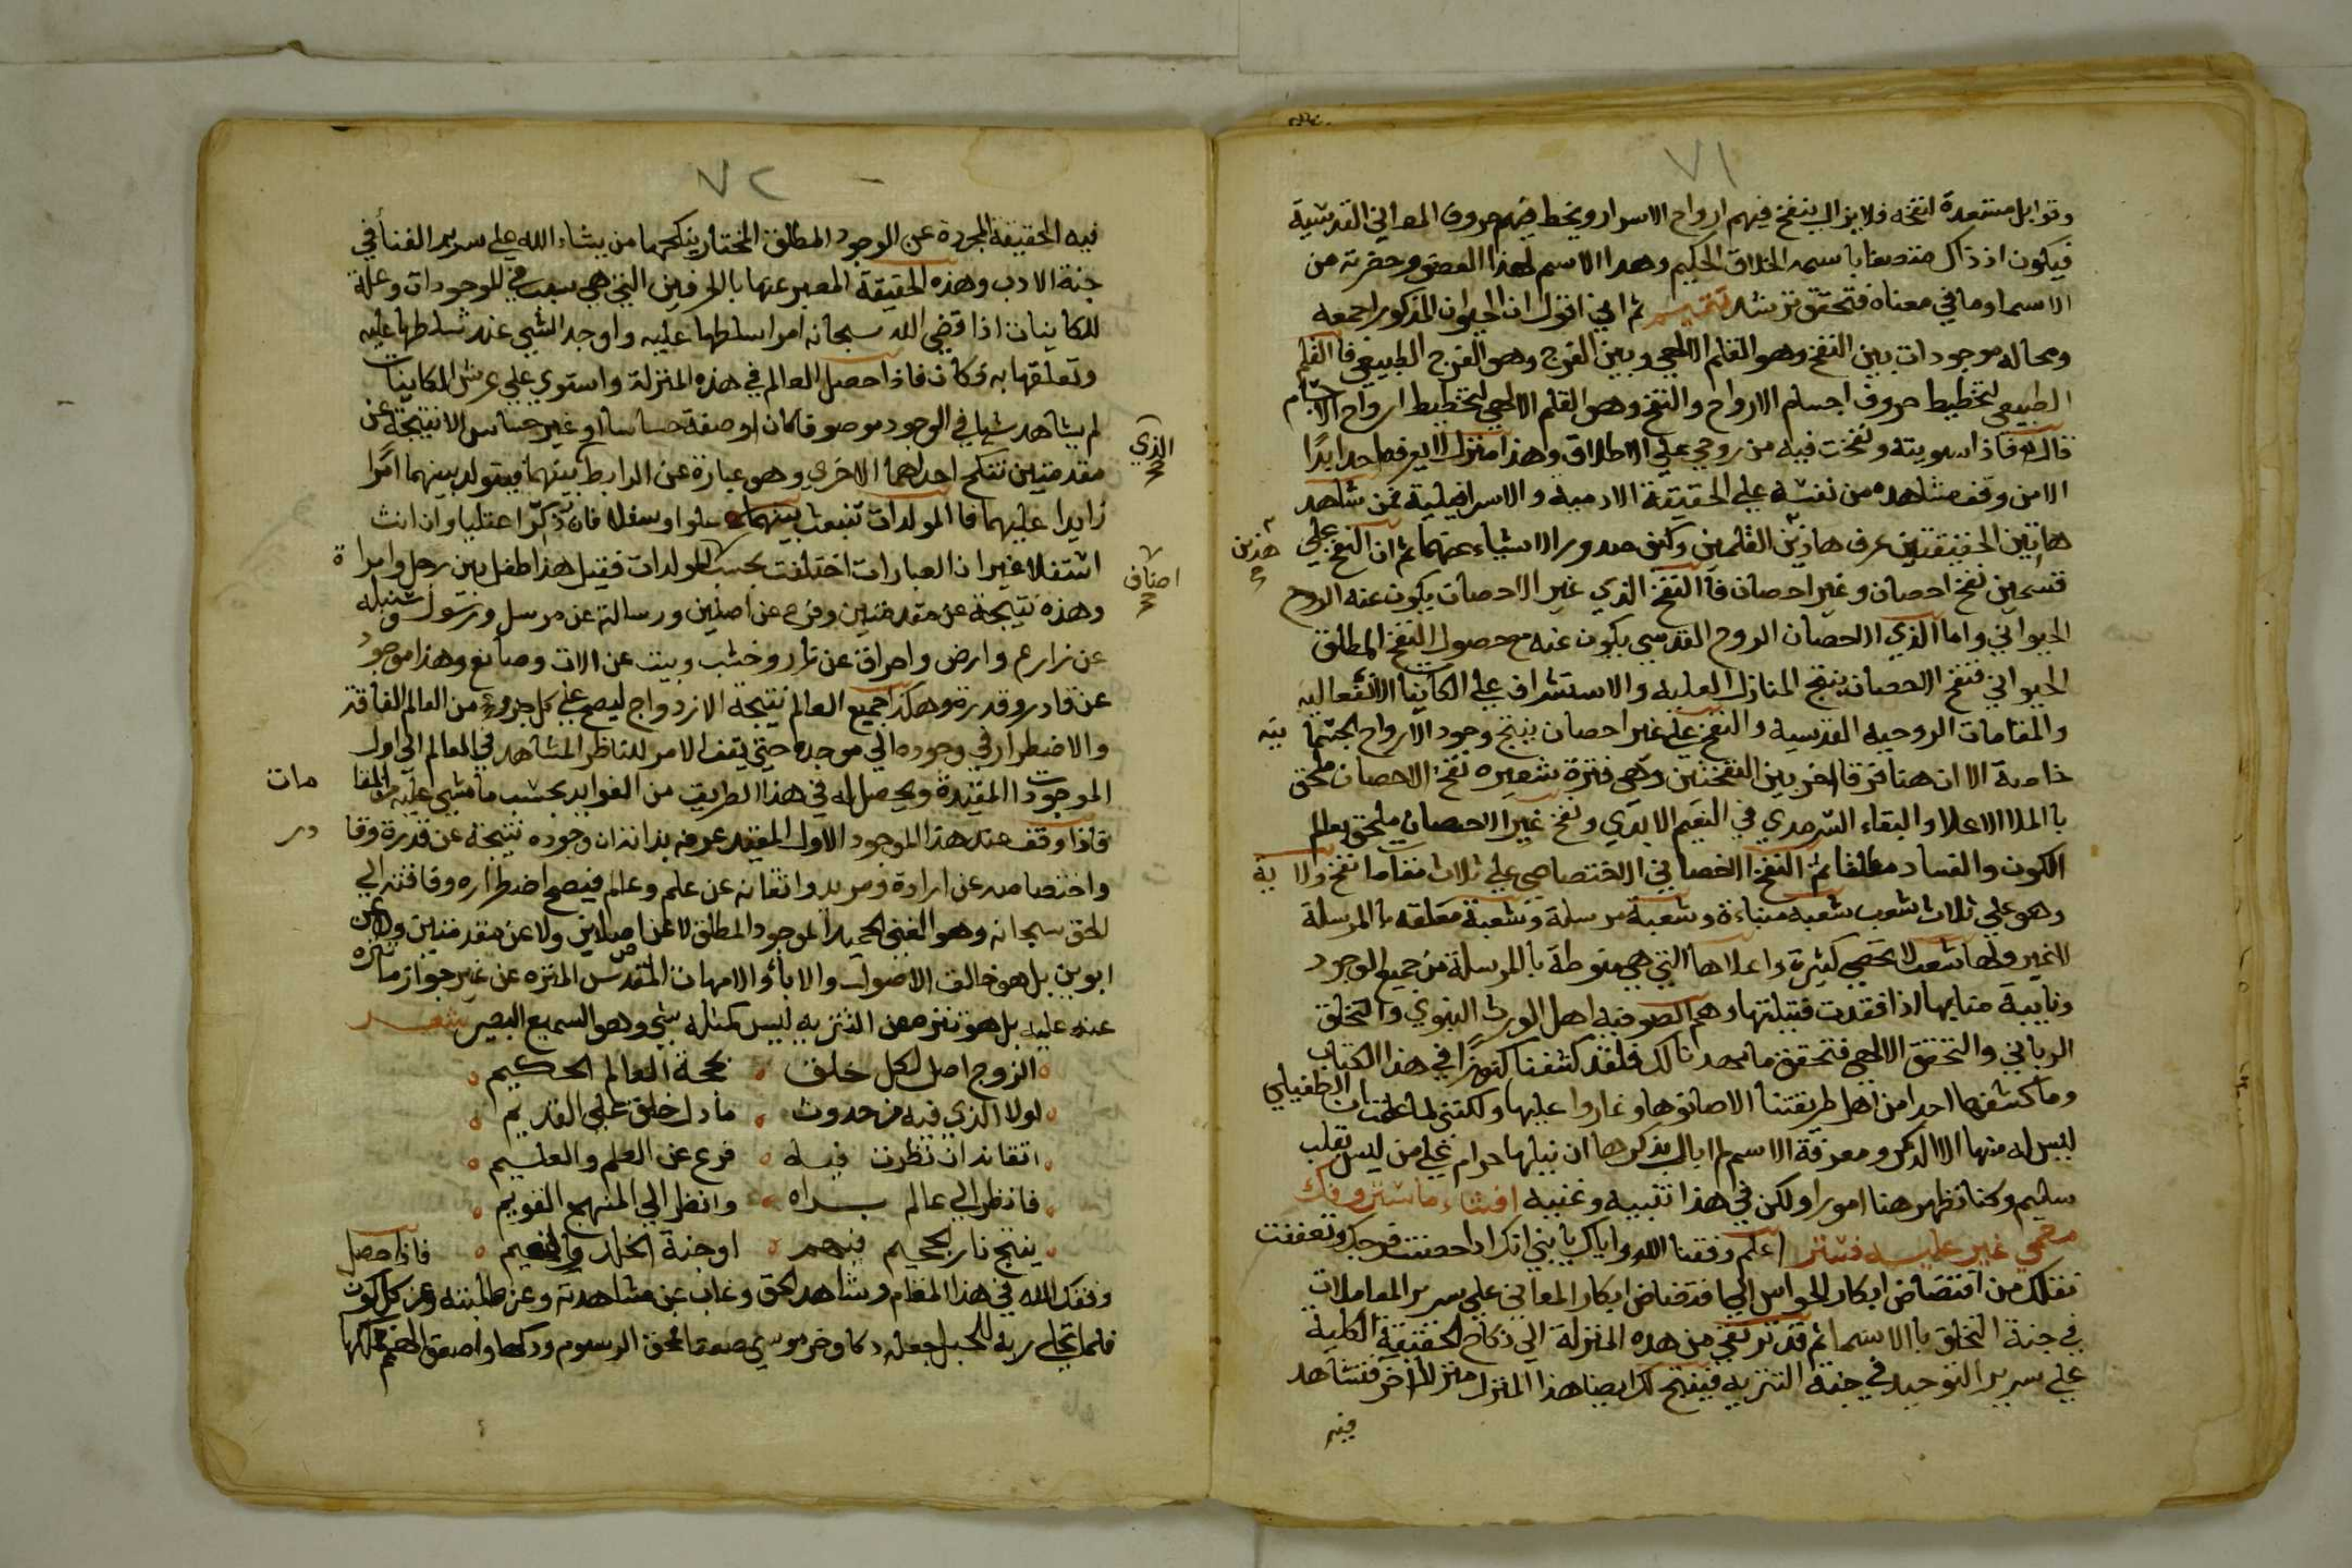 ٧١
وقوابل مستعدة انتخه فلا يزال ينفخ فيهم ارواح الاسرار ويخط فيهم حروف المعاني القدسية
فيكون اذ ذاك متصفا باسمه الخلاق الحكيم وهذا الاسم لهذا العضو وحضرته من
الاسما وما في معناه فتحقق ترشد تتميم ثم اني اقول ان الحيوان المذكور اجمعه
ومحاله موجودات بين النفخ وهو القلم الالهي وبين الفرج وهو الفرج الطبيعي فالقلم
الطبيعي لتخطيط حروف اجسام الارواح والنفخ وهو القلم الالهي لتخطيط ارواح الاجسام
قال الله فاذا سويته ونفخت فيه من روحي علي الاطلاق وهذا منزل لا يعرفه احدا بدًا
الا من وقف مشاهده من نفسه علي الحقيقة الادمية والاسرافيلية فمن شاهد
هاتين الحقيقتين عرف هاذين القلمين وكيف صدور الاشياء عنهما ثم ان النفخ علي
هذين
قسمين نفخ احصان وغير احصان فاالنفخ الذي غير الاحصان يكون عنه الروح
الحيواني واما الذي الاحصان الروح القدسي يكون عنه مع حصول النفخ المطلق
الحيواني فنفخ الاحصان ينتج المنازل العلية والاستشراف علي الكاينات الانفعاليه
والمقامات الروحيه القدسيه والنفخ علي غير احصان ينتج وجود الارواح الجسما نيه
خاصة الا ان هنا فرقا اخر بين النفختين وهي فترة شعيره نفخ الاحصان ملحق
با الملا الاعلا والبقاء السرمدي في النعيم الابدي ونفخ غير الاحصان ملحق بعالم
الكون والفساد مطلقا ثم النفخ الحصاني الاختصاصي علي ثلاث مقامات نفخ ولا ية
وهو علي ثلاث شعب شعبه منباة وشعبة مرسلة وشعبة متعلقه با المرسلة
لا غير ولها شعب لا تحصي كثيرة واعلاها التي هي منوطة با المرسلة من جميع الوجود
ونايبة منابها اذا فقدت قبلتها وهم الصوفيه اهل الورث النبوي والتخلق
الرباني والتحقق الالهي فتحقق ما مهدنا لك فلقد كشفنا كنوزًا في هذا الكتاب
وما كشفها احد من اهل طريقتنا الا صانوها وغاروا عليها ولكنني لما علمت ان الطفيلي
ليس له منها الا الذكر ومعرفة الاسم لم ابال بذكرها ان نيلها حرام علي من ليس بقلب
سليم وكنا نظهر هنا امورا ولكن في هذا تنبيه وغنيه افشاء ما ستر وفك
معمي غير عليه فستر اعلم وفقنا الله واياك يا بني انك اذا حصنت فرجك وتعففت
نقلك من افتضاض ابكار الحواس الي افتضاض ابكار المعاني علي سرير المعاملات
في جنة التخلق با الاسما ثم قد ترتقي من هذه المنزلة الي نكاح الحقيقة الكلية
علي سرير التوحيد في جنة التنزيه فينتج لك ايضا هذا المنزل منزلا اخر فتشاهد
فيه
٧٢
فيه الحقيقة المجردة عن الوجود المطلق المختار ينكحها من يشاء الله علي سرير الفنا في
جنة الادب وهذه الحقيقة المعبر عنها بالحرفين التي هي سبب في الموجودات وعلة
للكاينات اذا قضي الله سبحانه امرا سلطها عليه واوجد الشي عند تسلطها عليه
وتعلقها به فكان فاذا حصل العالم في هذه المنزلة واستوي علي عرش الكاينات
لم يشاهد شيا في الوجود موصوفا كان او صفة حساسا او غير حساس الا نتيجة عن
الذي
مقدمتين تنكح احداهما الاخري وهو عبارة عن الرابط بينهما فيتولد بينهما امرًا
زايدا عليهما فا المولدات تنبعث بينهما علوا وسفلا فان ذكر اعتليا وان انث
استفلا غير ان العبارات اختلفت بحسب المولدات فقيل هذا طفل بين رجل وامراة
اصناف
وهذه نتيجة عن مقدمتين وفرع عن اصلين ورسالة عن مرسل ورسول وسنبله
عن زارع وارض واحراق عن نار وخشب وبيت عن الات وصانع وهذا موجود
عن قادر وقدرة وهكذا جميع العالم نتيجة الازدواج ليصح علي كل جزء من العالم الفاقة
والاضطرار في وجوده الي موجده حتي يقف الامر للناظر المشاهد في العالم الي اول
الموجودات المقيدة ويحصل له في هذا الطريق من الفوايد بحسب ما مشي عليه من المقا مات
فاذا وقف عند هذا الموجود الاول المقيد عرف بذاته ان وجوده نتيجة عن قدرة وقا در
واختصاصه عن ارادة ومريد واتقانه عن علم وعالم فيصح اضطراره وفاقته الي
الحق سبحانه وهو الغني الحميد الموجود المطلق لا عن اصلين ولا عن مقدمتين ولا عن
ابوين بل هو خالق الاصول والاباء والامهات المقدس المنزه عن غير جواز ما تنزه
عنه عليه بل هو تنزه عن التنزيه ليس كمثله شي وهو السميع البصير شعر
الزوج اصل لكل خلق ٥ حكمة العالم الحكيم
لولا الذي فيه من حدوث ٥ ما دل خلق علي القديم
اتقانه ان نظرت فيه ٥ فرع عن العلم والعليم
فانظر الي عالم براه ٥ وانظر الي المنهج القويم
ينتج نار الجحيم فيهم ٥ او جنة الخلد والنعيم ٥ فاذا حصل
وفقك الله في هذا المقام وشاهد الحق وغاب عن مشاهدته وعن طلبته وعن كل كون
فلما تجلي ربه للجبل جعله دكا وخر موسي صعقا محق الرسوم ودكها واصعق الهمم